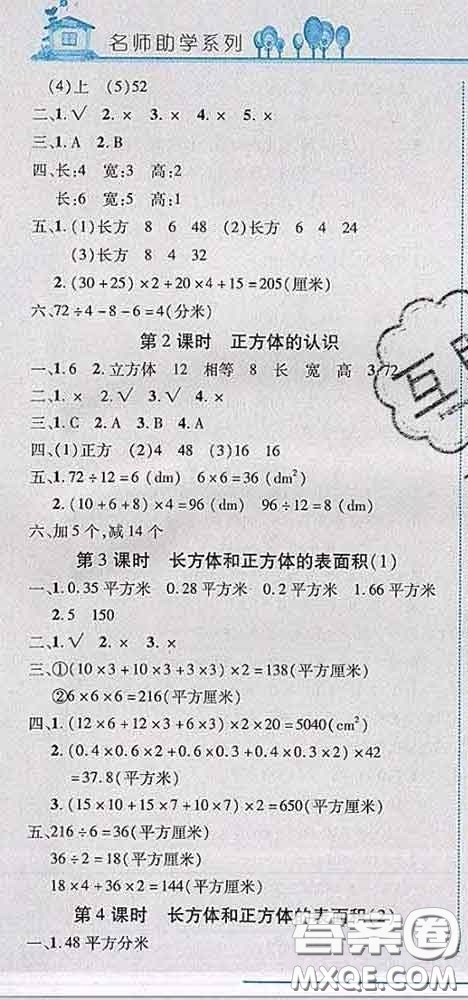 名师助学系列
(4)上 (5)52
二、1.√ 2.× 3.× 4.× 5.×
三、1.A 2.B
四、长:4 宽:3 高:2
长:6 宽:5 高:1
五、1.(1)长方 8 6 48 (2)长方 6 4 24
(3)长方 8 4 32
2.(30+25)×2+20×4+15=205(厘米)
六、72÷4-8-6=4(分米)
第2课时 正方体的认识
一、1.6 2.立方体 12 相等 8 长 宽 高 3.72
三、1.C 2.A 3.B 4.B
四、(1)正方 (2)4 48 (3)16 16
五、1.72÷12=6(dm) 6×6=36(dm²)
2.(10+6+8)×4=96(dm) 96÷12=8(dm)
六、加5个,减14个
第3课时 长方体和正方体的表面积(1)
一、1.0.35平方米 0.28平方米 0.2平方米 1.66平方米
2.5 150
二、1.√ 2.× 3.×
三、①(10×3+10×3+3×3)×2=138(平方厘米)
②6×6×6=216(平方厘米)
四、1.(12×6+12×3+6×3)×2×20=5040(cm²)
2.(0.4×0.6×2+0.6×0.3+0.4×0.3×2)×42
=37.8(平方米)
3.(15×10+15×7+10×7)×2=650(平方厘米)
五、216÷6=36(平方厘米)
36÷2=18(平方厘米)
18×4+36×2=144(平方厘米)
第4课时 长方体和正方体的表面积(2)
一、1.48平方分米
答案圈
MXQE.COM